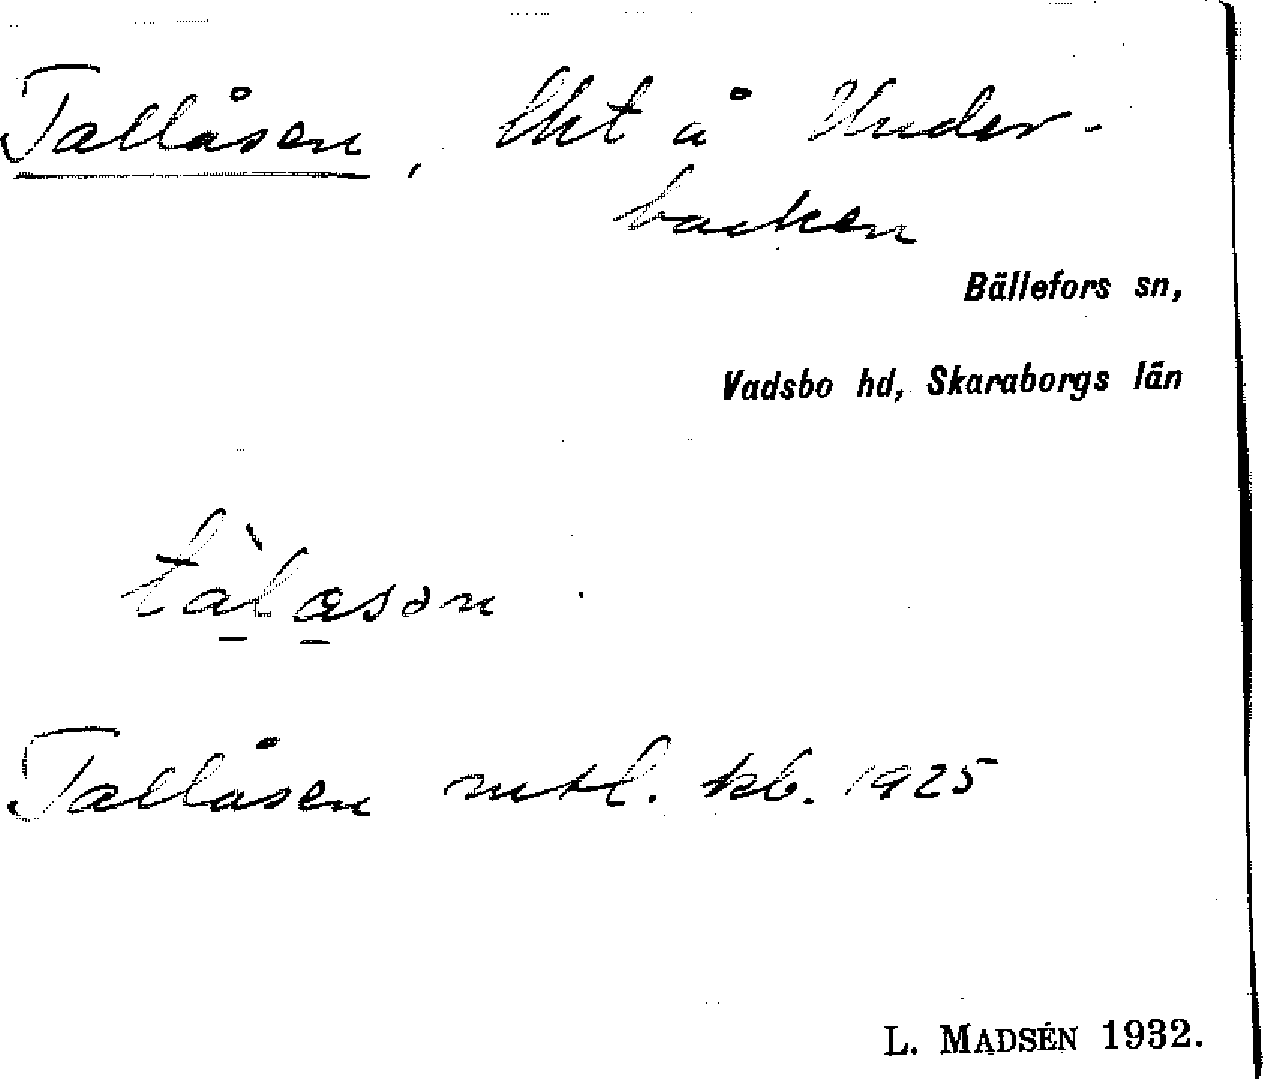 Tallåsen, lht å Under-
backen
Bällefors sn,
Vadsbo hd, Skaraborgs län
Tallåsen mtl. kb. 1925
L. MADSÉN 1932.